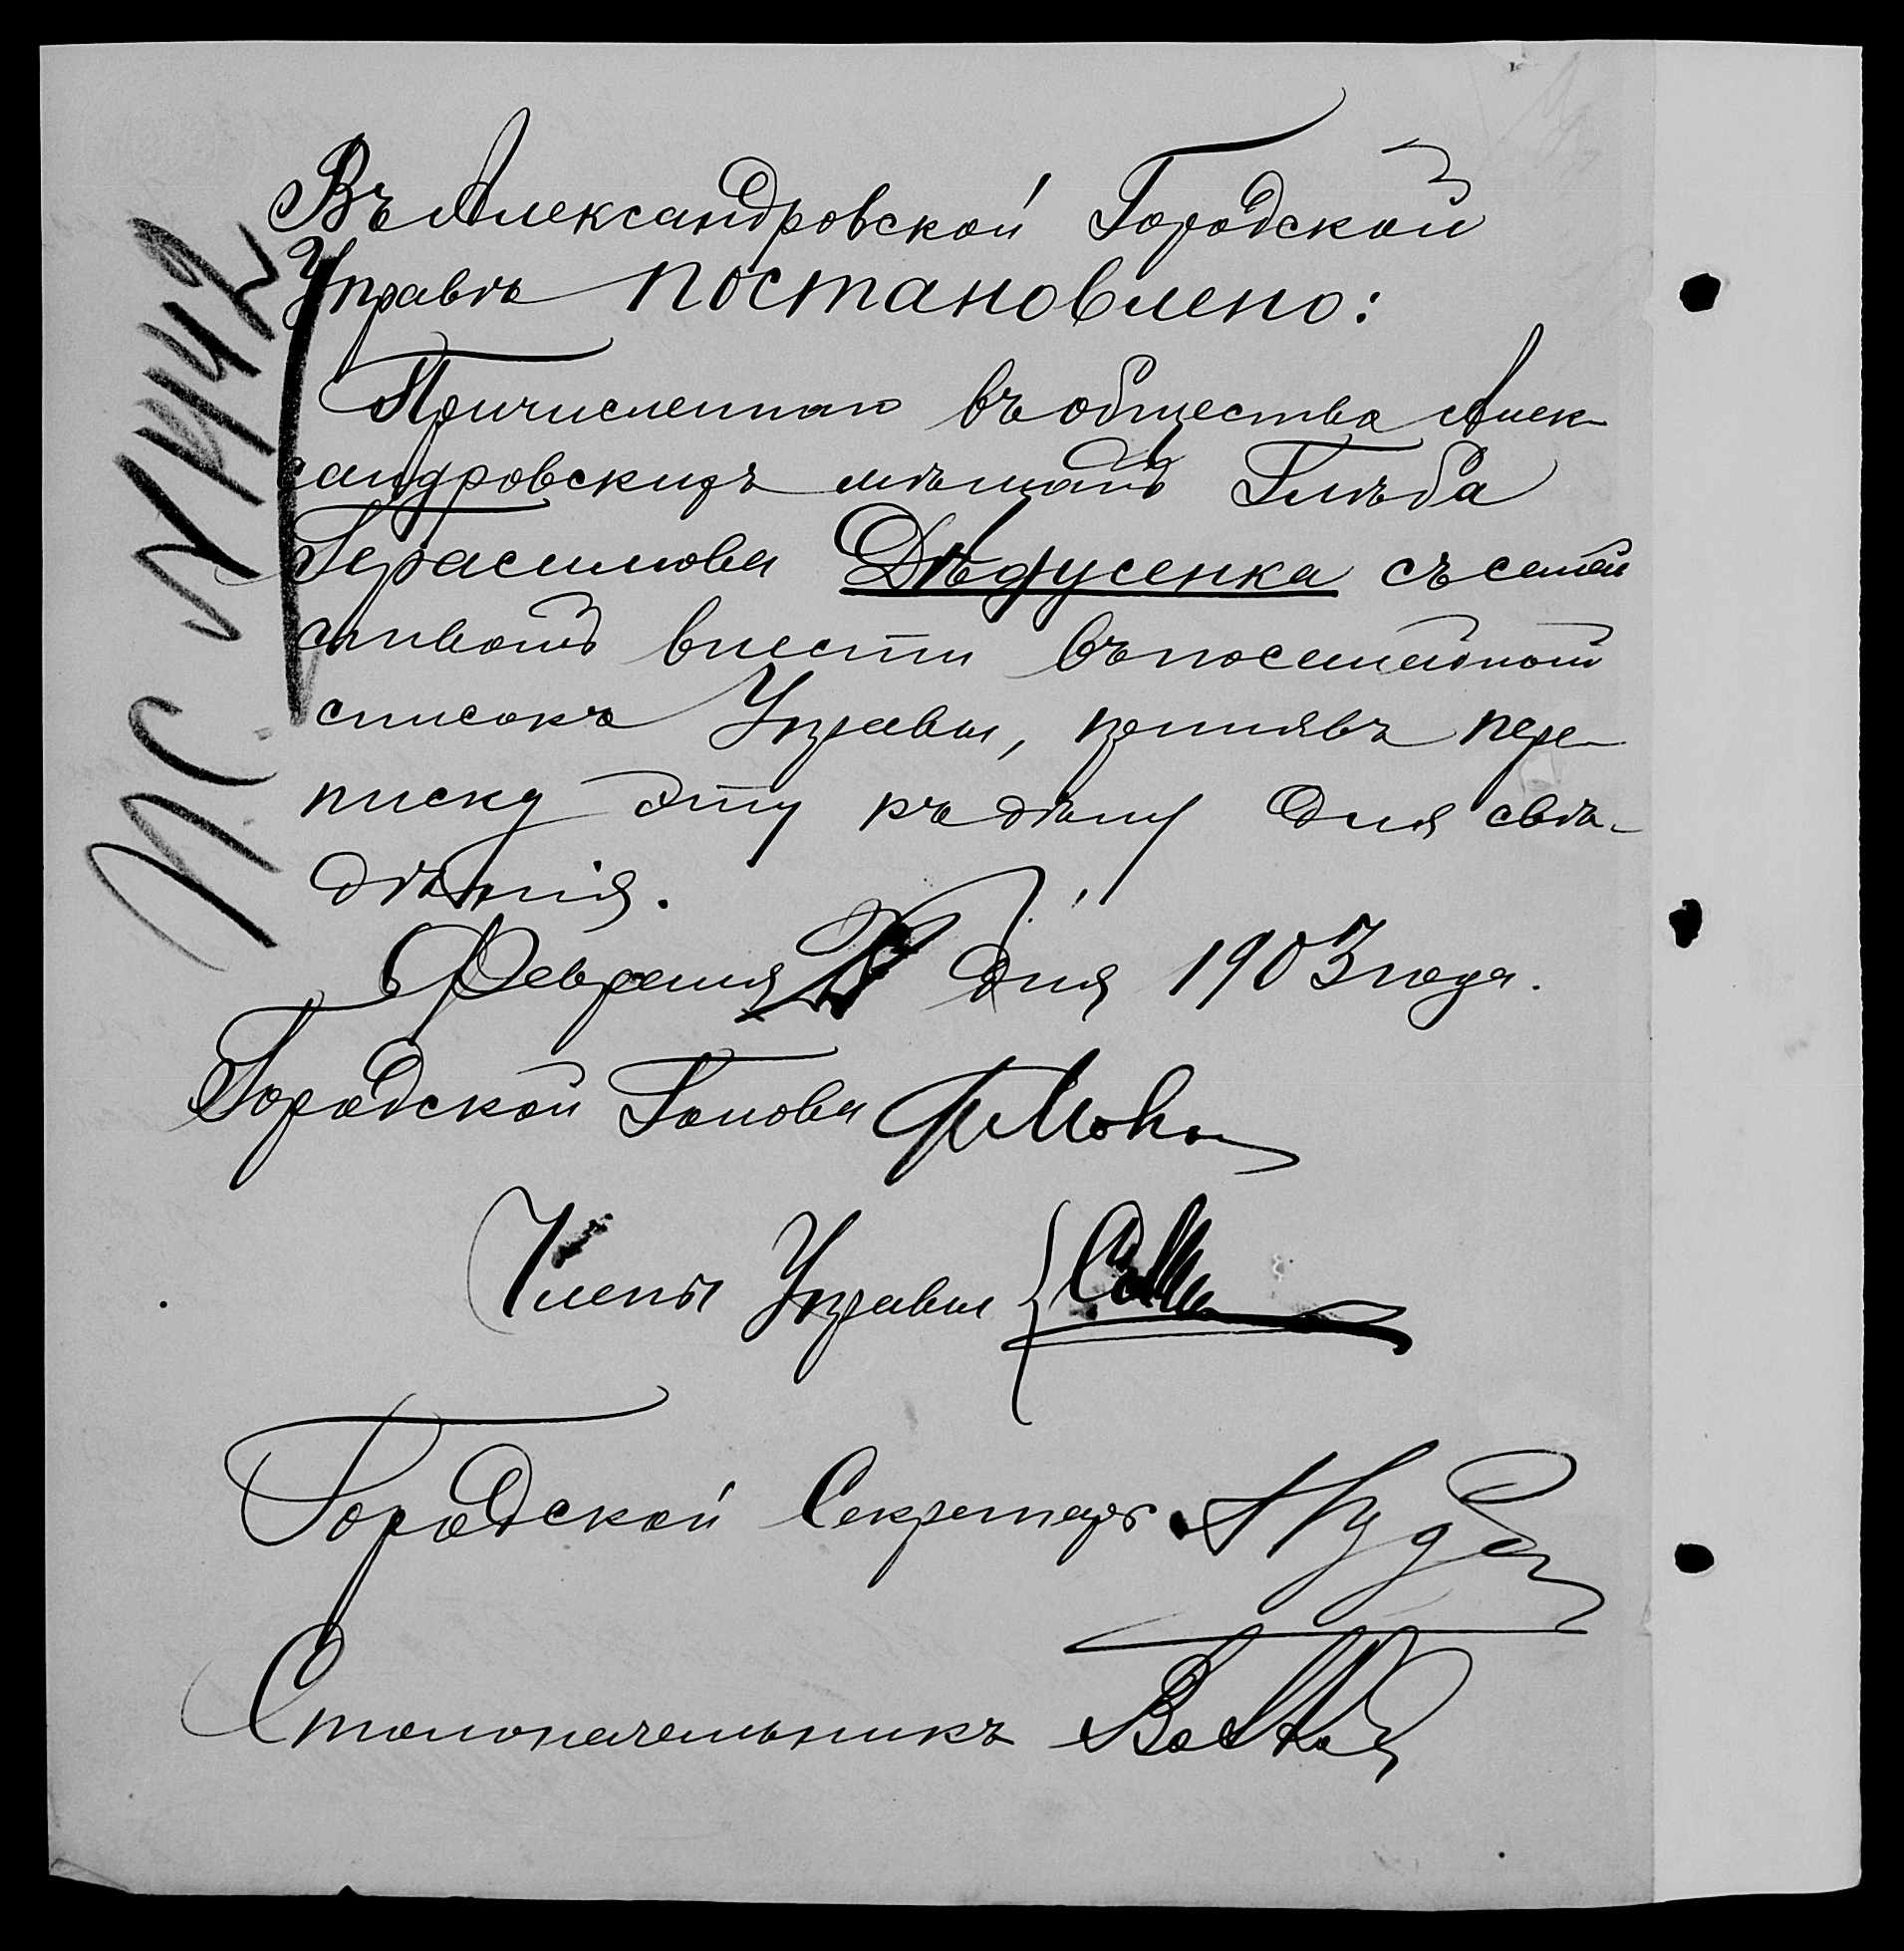 Въ Александровской Городской
Управѣ постановлено:
Причисленнаго въ общество Алек-
сандровскихъ мѣщанъ Глѣба
Герасимова Дѣдусенка съ семей
ствомъ внести въ посемейный
списокъ Управы, принявъ пере-
писку эту къ дѣлу для свѣ-
дѣнія.
Февраля дня 1903 года.
Городской Голова
Члены Управы
Городской Секретарь
Столоначальникъ